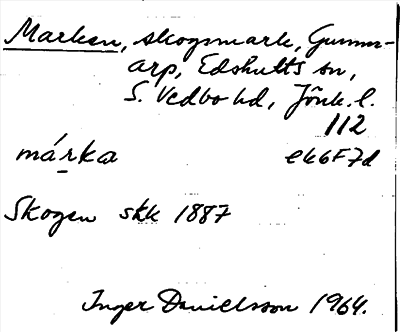 Marken, skogsmark, Gunn-
arp, Edshults sn,
S. Vedbo hd, Jönk. l.
112
márka ek6F7d
Skogen skk 1887
Inger Danielsson 1964.